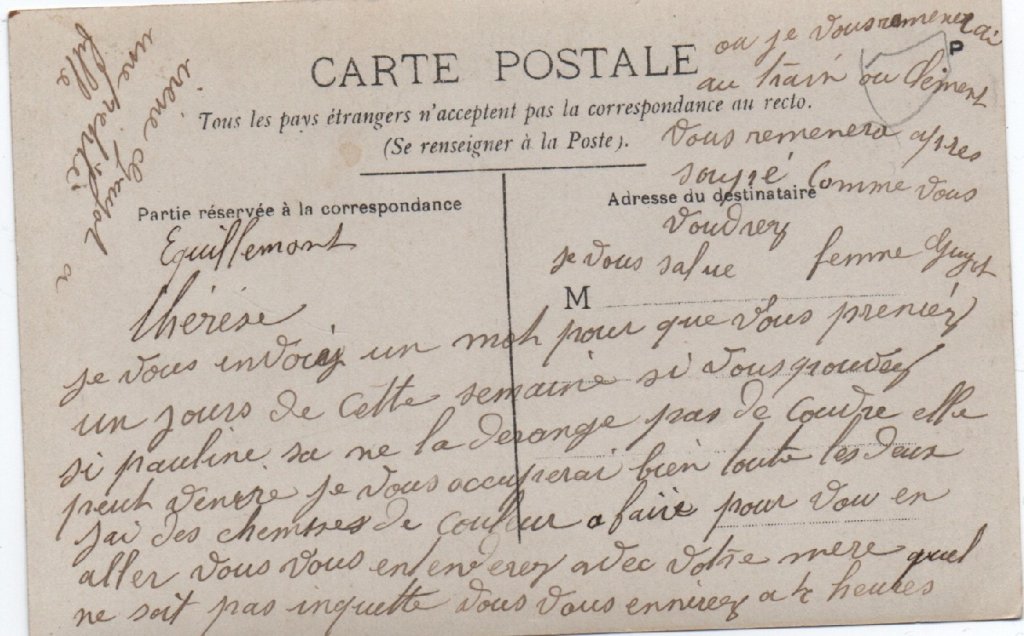 CARTE POSTALE
Tous les pays étrangers n'acceptent pas la correspondance au recto.
(Se renseigner à la Poste).
Partie réservée à la correspondance
Adresse du destinataire
M
P
Equillemont
thérése
je vous envoiez un mot pour que vous preniéz
un jours de cette semaine si vous pouvez
si pauline sa ne la derange pas de coudre elle
peut venire je vous occuperai bien toute les deux
jai des chemises de couleur a faire pour vou en
aller vous vous en enverez avec votre mere quel
ne soit pas inquette vous vous ennirez a 4 heures
ou je vous remenerai
au train ou Clement
vous remenera apres
soupé comme vous
voudrez
je vous salue femme Guyot
irène Guyot a
une petite
fille